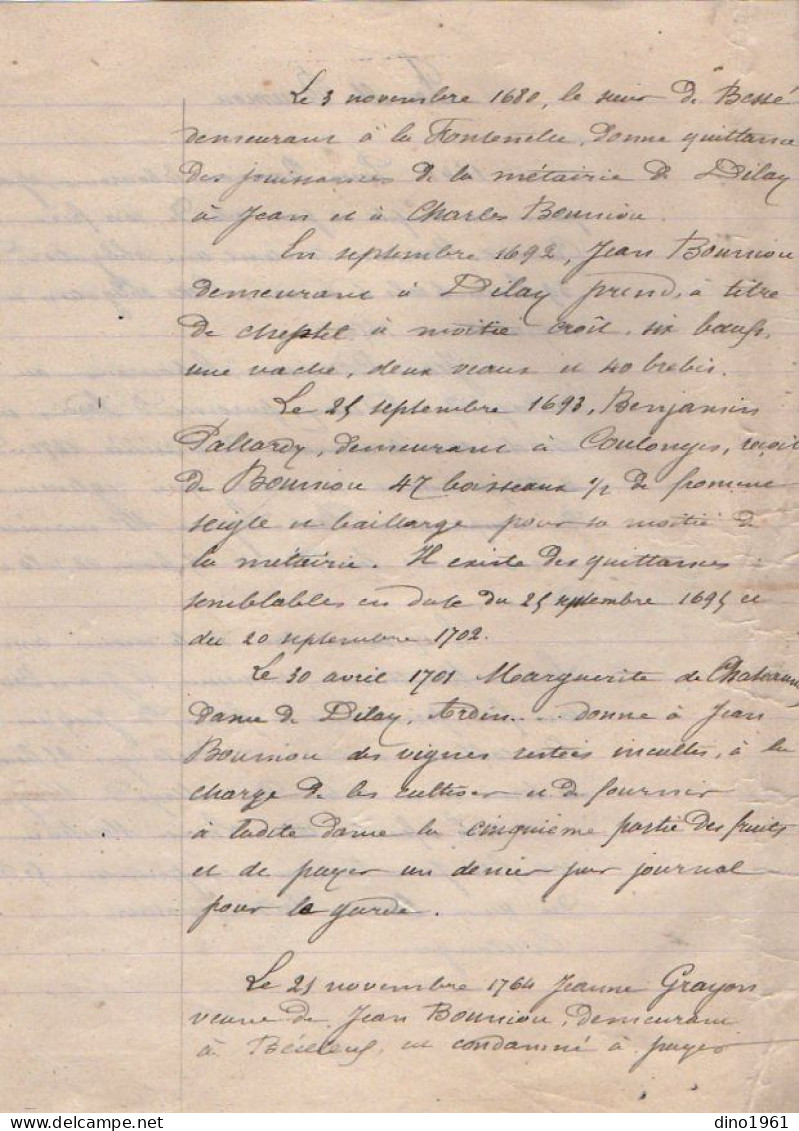 Le 3 novembre 1680, le sieur de Bessé
demeurant à la Fontenelle, donne quittance
des jouissances de la métairie de Dilay
à Jean et à Charles Bouniou.
En septembre 1692, Jean Bouniou
demeurant à Dilay prend, à titre
de cheptel à moitié croît, six bœufs,
une vache, deux veaux et 40 brebis.
Le 25 septembre 1693, Benjamin
Pallardy, demeurant à Coulonges, reçoit
de Bouniou 47 boisseaux 1/2 de froment
seigle et baillarge pour sa moitié de
la métairie. Il existe des quittances
semblables en date du 25 septembre 1695 et
du 20 septembre 1702.
Le 30 avril 1701 Marguerite de
dame de Dilay, Ardin.... donne à Jean
Bouniou des vignes restées incultes, à la
charge de les cultiver et de fournir
à ladite dame la cinquième partie des fruits
et de payer un denier par journal
pour la garde.
Le 21 novembre 1764 Jeanne Grayon
veuve de Jean Bouniou, demeurant
à Béceleuf, est condamné à payer
dino1961